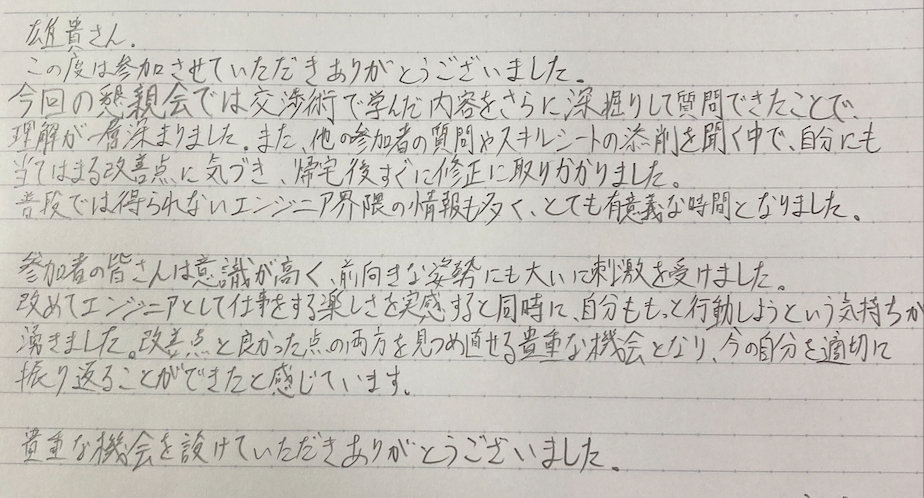 雄貴さん.
この度は参加させていただきありがとうございました。
今回の懇親会では交渉術で学んだ内容をさらに深掘りして質問できたことで、
理解が一層深まりました。また、他の参加者の質問やスキルシートの添削を聞く中で、自分にも
当てはまる改善点に気づき、帰宅後すぐに修正に取りかかりました。
普段では得られないエンジニア界隈の情報も多く、とても有意義な時間となりました。
参加者の皆さんは意識が高く、前向きな姿勢にも大いに刺激を受けました。
改めてエンジニアとして仕事をする楽しさを実感すると同時に、自分ももっと行動しようという気持ちが
湧きました。改善点と良かった点の両方を見つめ直せる貴重な機会となり、今の自分を適切に
振り返ることができたと感じています。
貴重な機会を設けていただきありがとうございました。